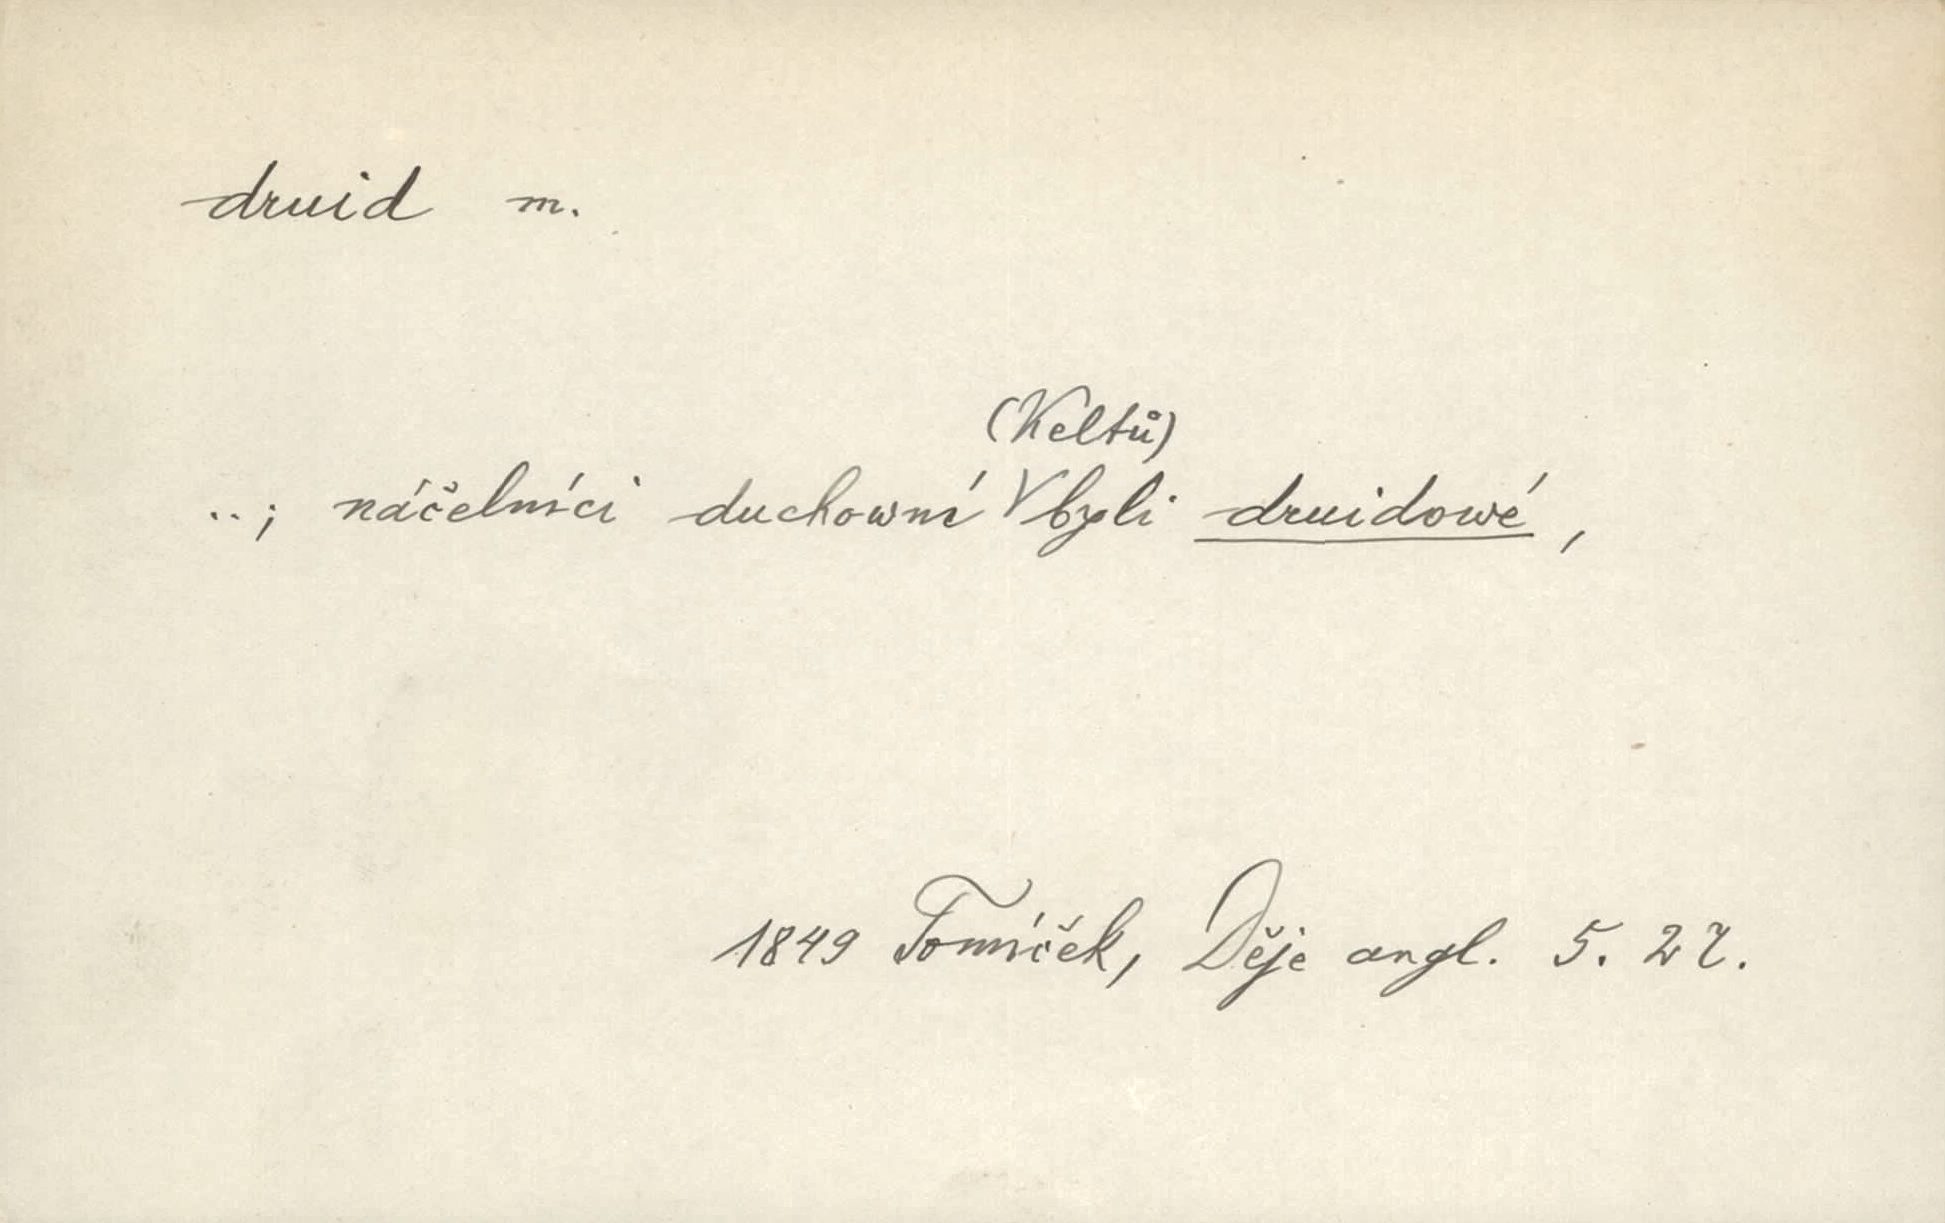 druid m.
(Keltů)
..; náčelníci duchowní V byli druidowé,
1849 Tomíček, Děje angl. 5. 27.